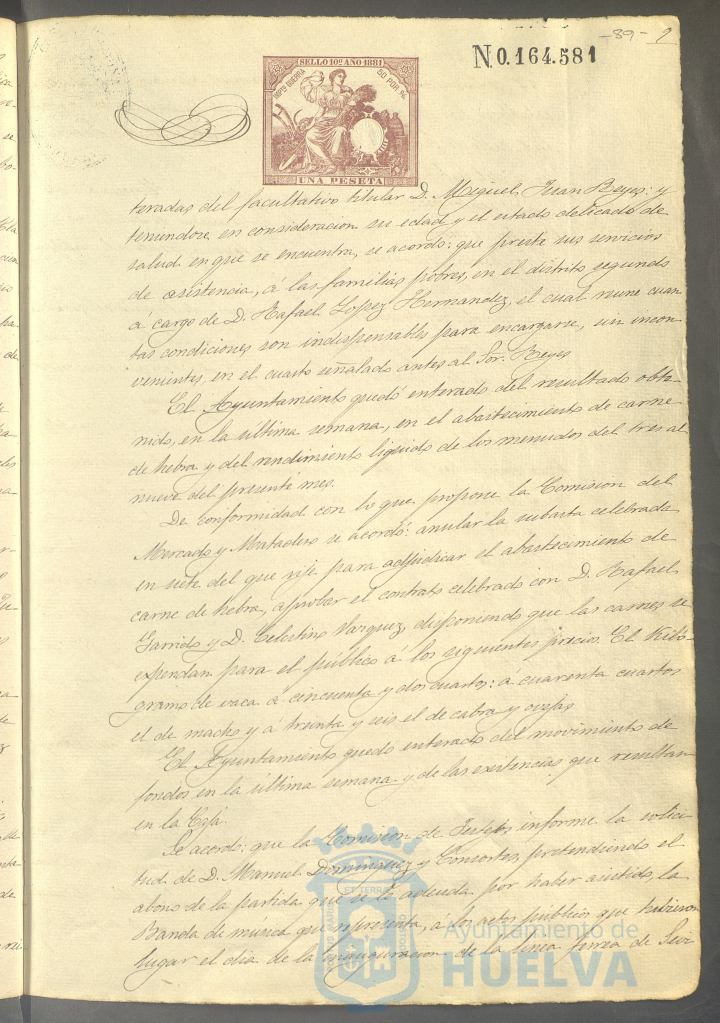 -89- 2
N0.164.581
SELLO 10º AÑO 1881
IMPTO GUERRA 50 POR %
UNA PESETA
teradas del facultativo titular D. Miguel Juan Reyes: y
teniendose en consideracion su edad y el estado delicado de
salud en que se encuentra, se acordó: que preste sus servicios
de asistencia, á las familias pobres, en el distrito segundo
á cargo de D. Rafael Lopez Hernandez, el cual reune cuan
tas condiciones son indispensables para encargarse, sin incon
venientes, en el cuarto señalado antes al Sor. Reyes.
El Ayuntamiento quedó enterado del resultado obte
nido, en la última semana, en el abastecimiento de carne
de hebra y del rendimiento liquido de los menudos del tres al
nueve del presente mes.
De conformidad con lo que propone la Comision del
Mercado y Matadero se acordó: anular la subasta celebrada
en siete del que rije para adjudicar el abastecimiento de
carne de hebra, aprobar el contrato celebrado con D. Rafael
Garrido y D. Celestino Vazquez, disponiendo que las carnes se
expendan para el público á los siguientes precios. El Kiló-
gramo de vaca á cincuenta y dos cuartos: á cuarenta cuartos
el de macho y á treinta y seis el de cabra y ovejas.
El Ayuntamiento quedó enterado del movimiento de
fondos en la última semana y de las existencias que resultan
en la Caja.
Se acordó: que la Comision de Festejos informe la solici
tud de D. Manuel Dominguez y Consortes, pretendiendo el
abono de la partida que se le adeuda por haber asistido, la
Banda de música que representa, á los actos públicos que tuvieron
lugar el dia de la inauguracion de la linea ferrea de Sevi
Ayuntamiento de
HUELVA